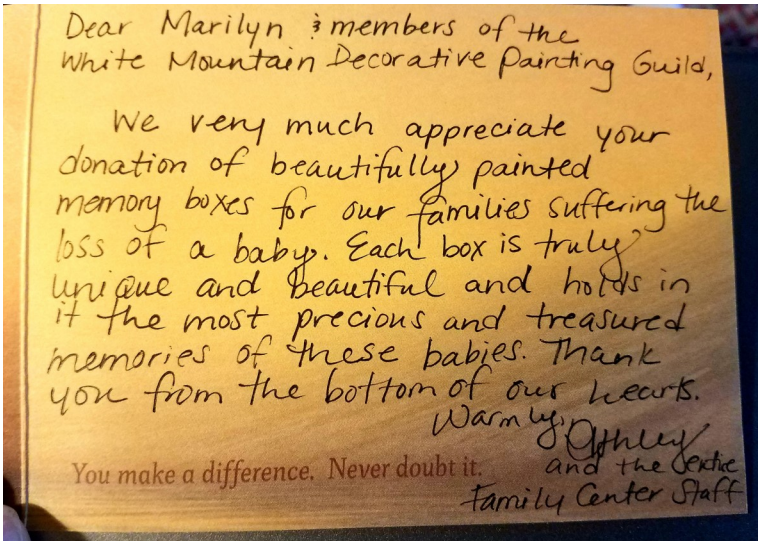 Dear Marilyn & members of the
White Mountain Decorative Painting Guild,
We very much appreciate your
donation of beautifully painted
memory boxes for our families suffering the
loss of a baby. Each box is truly
unique and beautiful and holds in
it the most precious and treasured
memories of these babies. Thank
you from the bottom of our hearts.
Warmly,
Ashley
and the entire
Family Center Staff
You make a difference. Never doubt it.